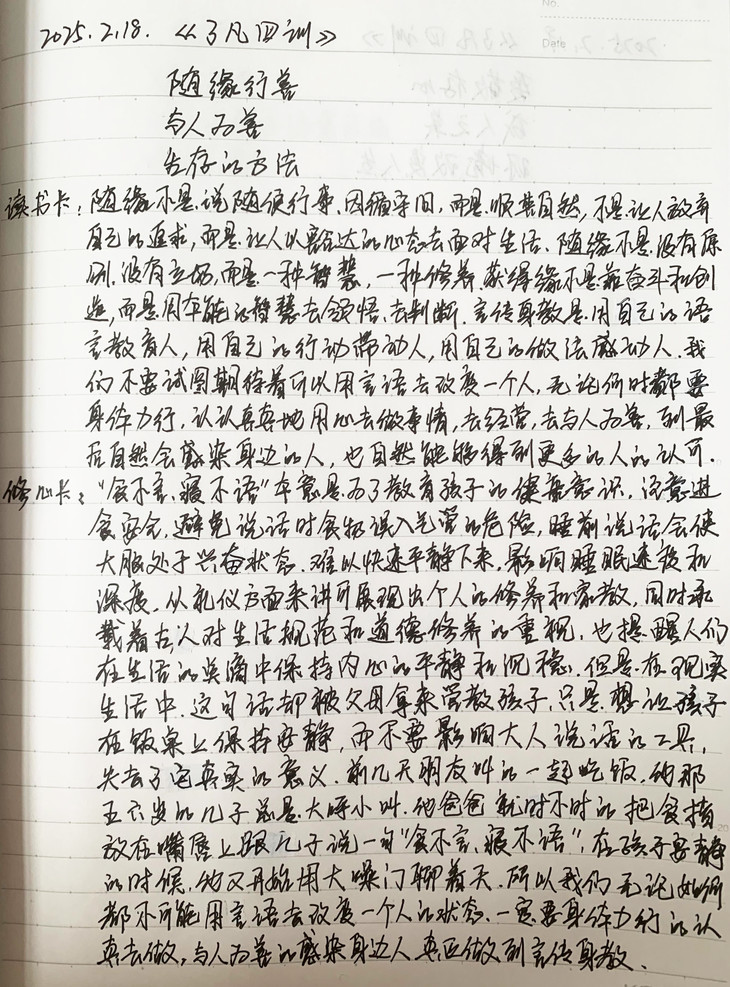 2025.2.18. 《了凡四训》
随缘行善
与人为善
生存的方法
读书卡：随缘不是说随便行事、因循苟且，而是顺其自然，不是让人放弃
自己的追求，而是让人以豁达的心态去面对生活。随缘不是没有原
则、没有立场，而是一种智慧，一种修养。获得缘不是靠奋斗和创
造，而是用本能的智慧去领悟、去判断。言传身教是用自己的语
言教育人，用自己的行动带动人，用自己的做法感动人。我
们不要试图期待着可以用言语去改变一个人，无论何时都要
身体力行，认认真真地用心去做事情，去经营，去与人为善，到最
后自然会感染身边的人，也自然能够得到更多的人的认可。
修心卡：“食不言、寝不语”本意是为了教育孩子的健康意识，注意进
食安全，避免说话时食物误入气管的危险，睡前说话会使
大脑处于兴奋状态，难以快速平静下来，影响睡眠速度和
深度。从礼仪方面来讲可展现出个人的修养和家教，同时承
载着古人对生活规范和道德修养的重视，也提醒人们
在生活的点滴中保持内心的平静和沉稳。但是在现实
生活中，这句话却被父母拿来管教孩子，只是想让孩子
在饭桌上保持安静，而不要影响大人说话的工具，
失去了它真实的意义。前几天朋友叫的一起吃饭，他那
五六岁的儿子总是大呼小叫，他爸爸就时不时的把食指
放在嘴唇上跟儿子说一句“食不言、寝不语”，在孩子安静
的时候，他又开始用大嗓门聊着天。所以我们无论如何
都不可能用言语去改变一个人的状态，一定要身体力行的认
真去做，与人为善的感染身边人，真正做到言传身教。
No.
Date